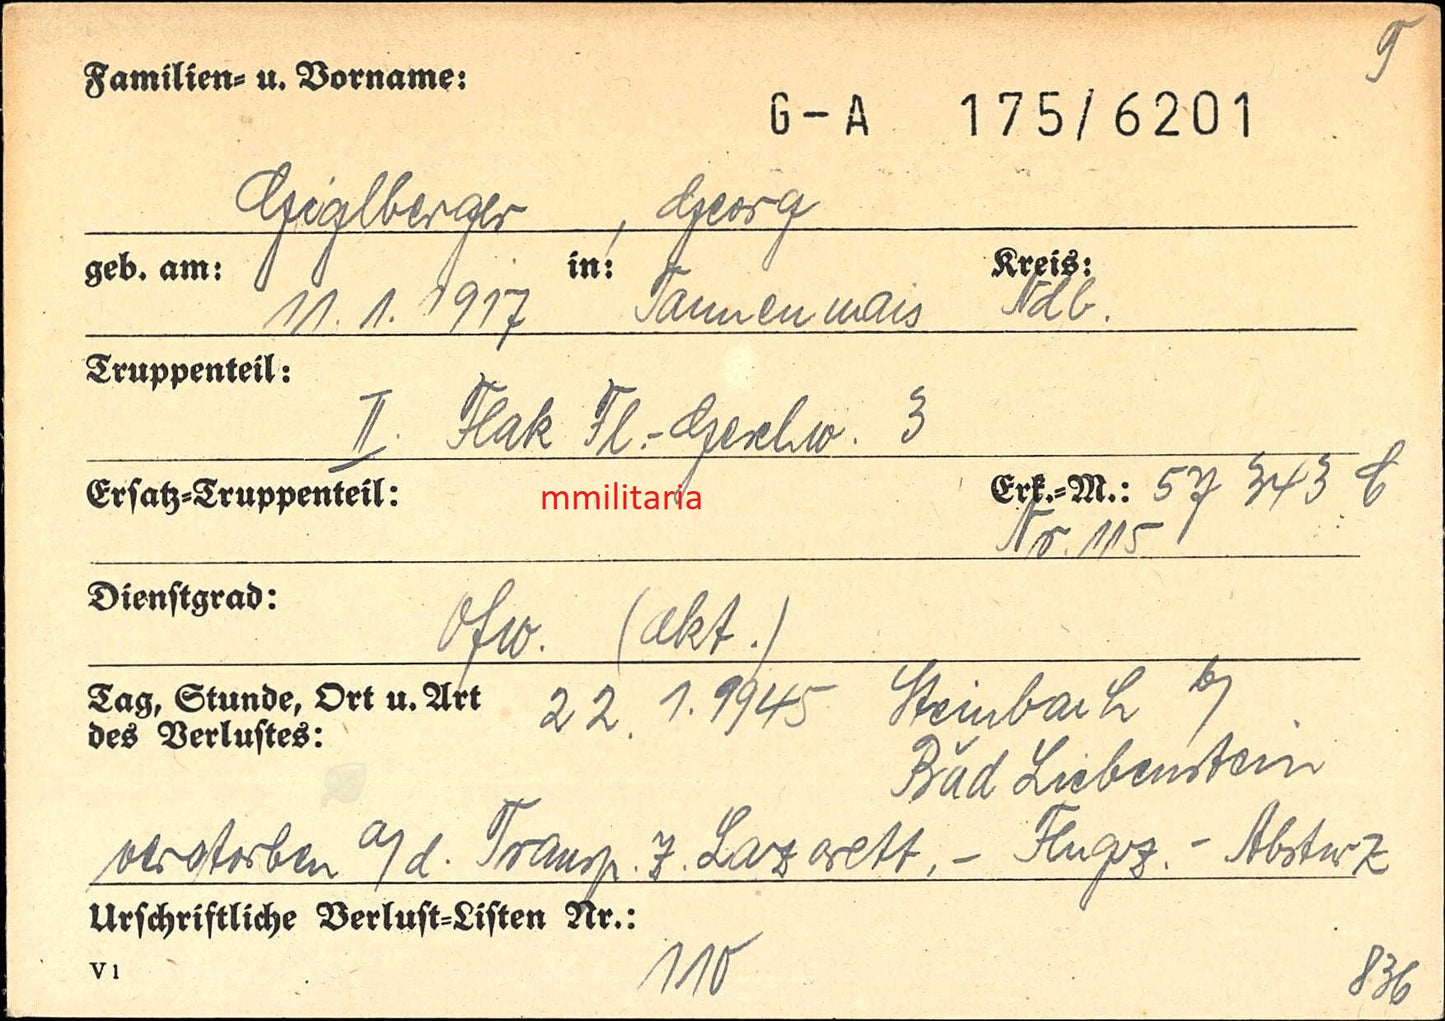 T
Familien- u. Vorname:
G-A 175/6201
Giglberger, Georg
geb. am: in: Kreis:
11. 1. 1917 Tannenmais Ndb.
Truppenteil:
II. Flak Fl.-Geschw. 3
Ersatz-Truppenteil: mmilitaria Erk.-M.: 57 343 C
Nr. 115
Dienstgrad:
Ofw. (akt.)
Tag, Stunde, Ort u. Art 22. 1. 1945 Steinbach b/
des Verlustes: Bad Liebenstein
verstorben a/d. Transp. z. Lazarett, – Flugz. - Absturz
Urschriftliche Verlust-Listen Nr.:
110
V 1
836